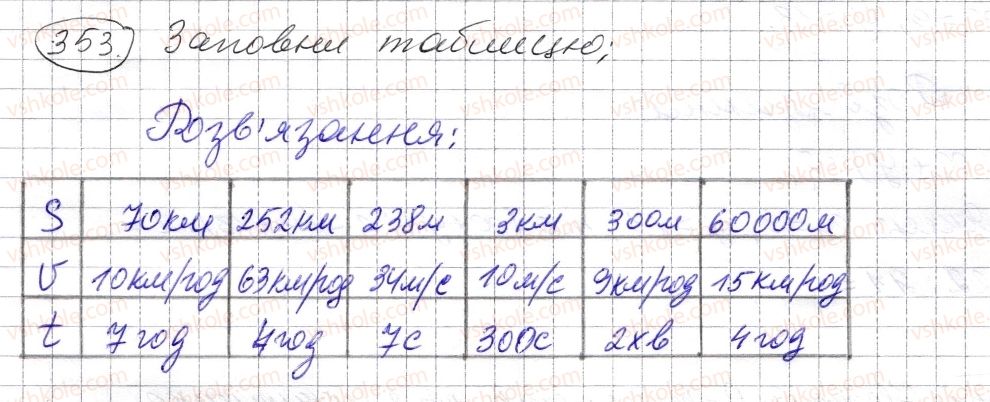 353. Заповни таблицю;
Розв'язання:
S 70км 252км 238м 3км 300м 60000м
υ 10км/год 63км/год 34м/с 10м/с 9км/год 15км/год
t 7год 4год 7с 300с 2хв 4год
vshkole.com